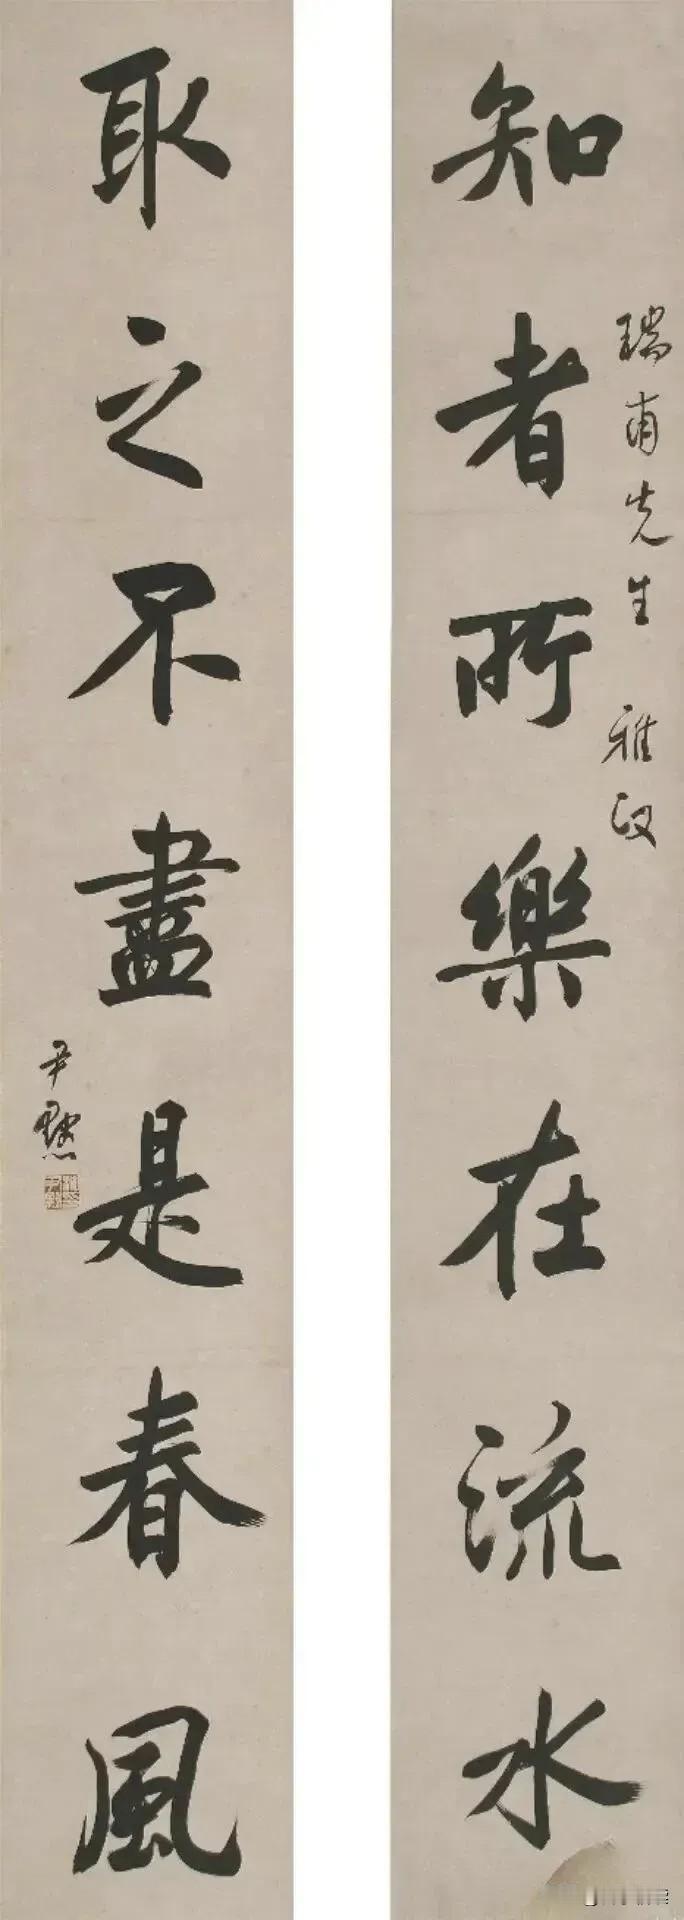 知者所樂在流水
瑞甫先生 雅政
取之不盡是春風
尹默